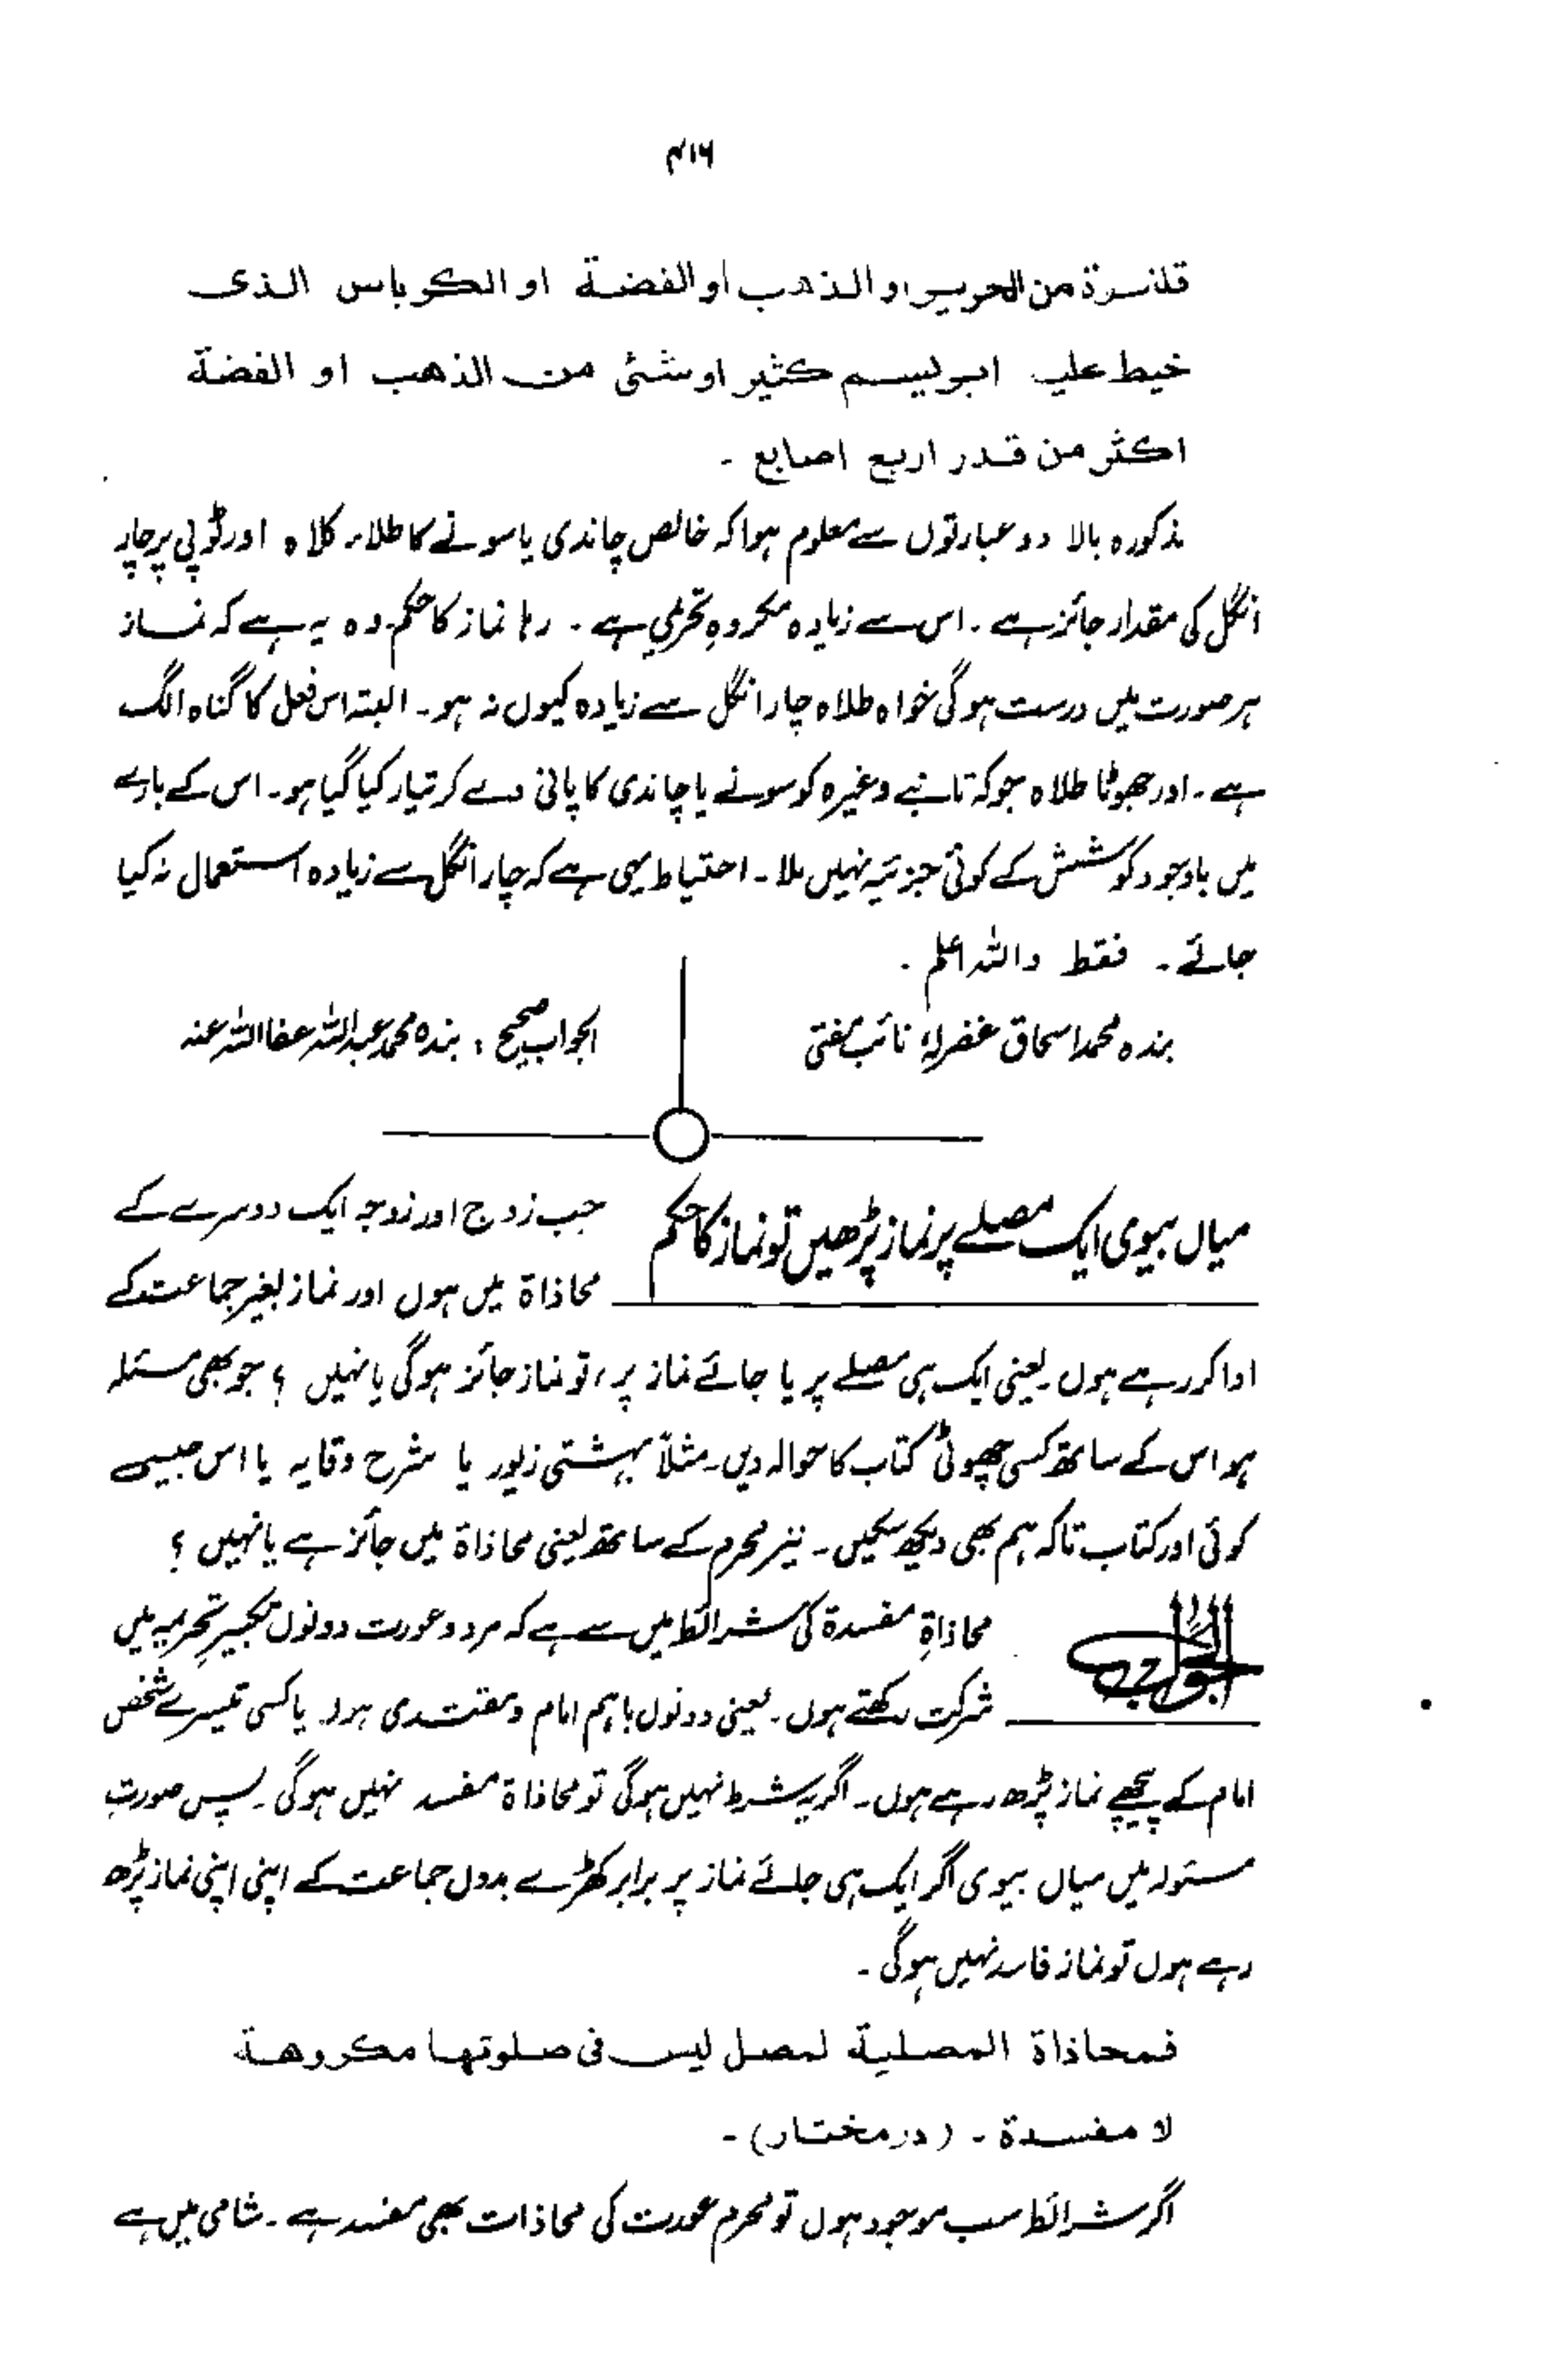 ۴۱۶
قلنسرة من الحرير او الذهب او الفضة او الكرباس الذى
خيط عليه ابريسم كثير او شئ من الذهب او الفضة
اكثر من قدر اربع اصابع ۔
مذکورہ بالا دو عبارتوں سے معلوم ہوا کہ خالص چاندی یا سونے کا طلاء کلاہ اور ٹوپی پر چار
انگل کی مقدار جائز ہے ۔ اس سے زیادہ مکروہِ تحریمی ہے ۔ رہا نماز کا حکم وہ یہ ہے کہ نماز
ہر صورت میں درست ہوگی خواہ طلاہ چار انگل سے زیادہ کیوں نہ ہو ۔ البتہ اس فعل کا گناہ الگ
ہے ۔ اور جھوٹا طلاہ جو کہ تانبے وغیرہ کو سونے یا چاندی کا پانی دے کر تیار کیا گیا ہو ۔ اس کے بارے
میں باوجود کوشش کے کوئی جزئیہ نہیں ملا ۔ احتیاط یہی ہے کہ چار انگل سے زیادہ استعمال نہ کیا
جائے ۔ فقط واللہ اعلم ۔
بندہ محمد اسحاق غفرلہٗ نائب مفتی
الجواب صحیح ؛ بندہ محمد عبداللہ عفا اللہ عنہ
میاں بیوی ایک مصلے پر نماز پڑھیں تو نماز کا حکم
جب زوج اور زوجہ ایک دوسرے کے
محاذاۃ میں ہوں اور نماز بغیر جماعت کے
ادا کر رہے ہوں ۔ یعنی ایک ہی مصلے پر یا جائے نماز پر ، تو نماز جائز ہوگی یا نہیں ؟ جو بھی مسئلہ
ہو اس کے ساتھ کسی چھوٹی کتاب کا حوالہ دیں ۔ مثلاً بہشتی زیور یا شرح وقایہ یا اس جیسی
کوئی اور کتاب تاکہ ہم بھی دیکھ سکیں ۔ نیز محرم کے ساتھ یعنی محاذاۃ میں جائز ہے یا نہیں ؟
الجواب
محاذاۃِ مفسدۃ کی شرائط میں سے ہے کہ مرد و عورت دونوں تکبیرِ تحریمہ میں
شرکت رکھتے ہوں ۔ یعنی دونوں باہم امام و مقتدی ہوں یا کسی تیسرے شخص
امام کے پیچھے نماز پڑھ رہے ہوں ۔ اگر یہ شرط نہیں ہوگی تو محاذاۃ مفسد نہیں ہوگی ۔ پس صورتِ
مسئولہ میں میاں بیوی اگر ایک ہی جائے نماز پر برابر کھڑے بدوں جماعت کے اپنی اپنی نماز پڑھ
رہے ہوں تو نماز فاسد نہیں ہوگی ۔
فمحاذاة المصلية لمصل ليس فى صلوتها مكروهة
لا مفسدة ۔ (درمختار) ۔
اگر شرائط سب موجود ہوں تو محرم عورت کی محاذات بھی مفسد ہے ۔ شامی میں ہے